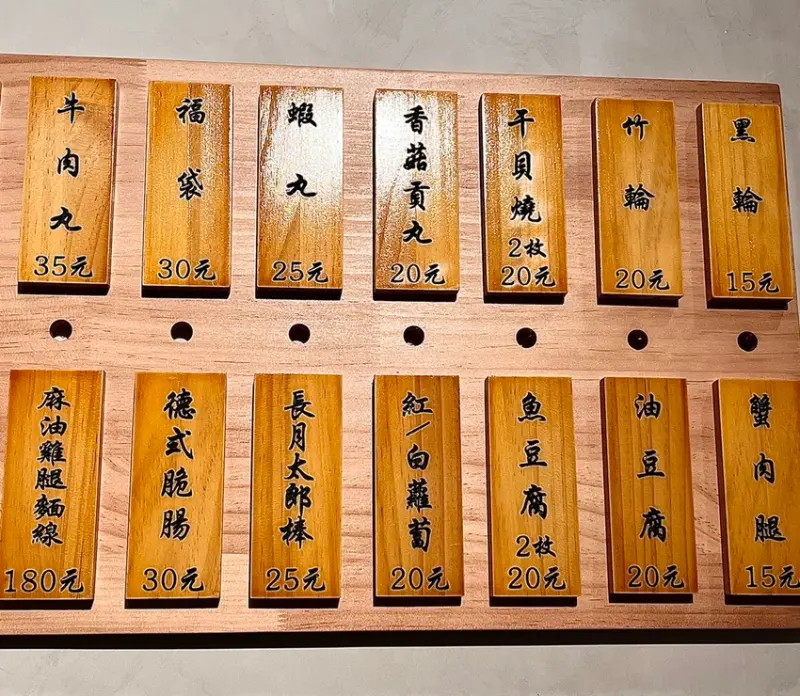 黑輪
15元
竹輪
20元
干貝燒
2枚
20元
香菇貢丸
20元
蝦丸
25元
福袋
30元
牛肉丸
35元
蟹肉腿
15元
油豆腐
20元
魚豆腐
2枚
20元
紅/白蘿蔔
20元
長月太郎棒
25元
德式脆腸
30元
麻油雞腿麵線
180元